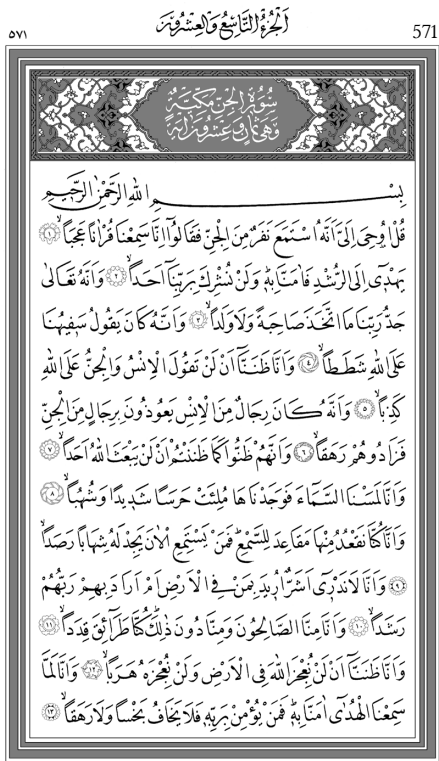 ٥٧١ اَلْجُزْءُ التَّاسِعُ وَالْعِشْرُونَ 571
سُورَةُ الْجِنِّ مَكِّيَّةٌ
وَهِيَ ثَمَانٍ وَعِشْرُونَ اٰيَةً
بِسْمِ اللّٰهِ الرَّحْمٰنِ الرَّح۪يمِ
قُلْ اُو۫حِيَ اِلَيَّ اَنَّهُ اسْتَمَعَ نَفَرٌ مِنَ الْجِنِّ فَقَالُٓوا اِنَّا سَمِعْنَا قُرْاٰنًا عَجَبًاۙ ﴿١﴾
يَهْد۪ٓي اِلَى الرُّشْدِ فَاٰمَنَّا بِه۪ۜ وَلَنْ نُشْرِكَ بِرَبِّنَٓا اَحَدًاۙ ﴿٢﴾ وَاَنَّهُ تَعَالٰى
جَدُّ رَبِّنَا مَا اتَّخَذَ صَاحِبَةً وَلَا وَلَدًاۙ ﴿٣﴾ وَاَنَّهُ كَانَ يَقُولُ سَف۪يهُنَا
عَلَى اللّٰهِ شَطَطًاۙ ﴿٤﴾ وَاَنَّا ظَنَنَّٓا اَنْ لَنْ تَقُولَ الْاِنْسُ وَالْجِنُّ عَلَى اللّٰهِ
كَذِبًاۙ ﴿٥﴾ وَاَنَّهُ كَانَ رِجَالٌ مِنَ الْاِنْسِ يَعُوذُونَ بِرِجَالٍ مِنَ الْجِنِّ
فَزَادُوهُمْ رَهَقًاۙ ﴿٦﴾ وَاَنَّهُمْ ظَنُّوا كَمَا ظَنَنْتُمْ اَنْ لَنْ يَبْعَثَ اللّٰهُ اَحَدًاۙ ﴿٧﴾
وَاَنَّا لَمَسْنَا السَّمَٓاءَ فَوَجَدْنَاهَا مُلِئَتْ حَرَسًا شَد۪يدًا وَشُهُبًاۙ ﴿٨﴾
وَاَنَّا كُنَّا نَقْعُدُ مِنْهَا مَقَاعِدَ لِلسَّمْعِۜ فَمَنْ يَسْتَمِعِ الْاٰنَ يَجِدْ لَهُ شِهَابًا رَصَدًاۙ
﴿٩﴾ وَاَنَّا لَا نَدْر۪ٓي اَشَرٌّ اُر۪يدَ بِمَنْ فِي الْاَرْضِ اَمْ اَرَادَ بِهِمْ رَبُّهُمْ
رَشَدًاۙ ﴿١٠﴾ وَاَنَّا مِنَّا الصَّالِحُونَ وَمِنَّا دُونَ ذٰلِكَۜ كُنَّا طَرَٓائِقَ قِدَدًاۙ ﴿١١﴾
وَاَنَّا ظَنَنَّٓا اَنْ لَنْ نُعْجِزَ اللّٰهَ فِي الْاَرْضِ وَلَنْ نُعْجِزَهُ هَرَبًاۙ ﴿١٢﴾ وَاَنَّا لَمَّا
سَمِعْنَا الْهُدٰٓى اٰمَنَّا بِه۪ۜ فَمَنْ يُؤْمِنْ بِرَبِّه۪ فَلَا يَخَافُ بَخْسًا وَلَا رَهَقًاۙ ﴿١٣﴾